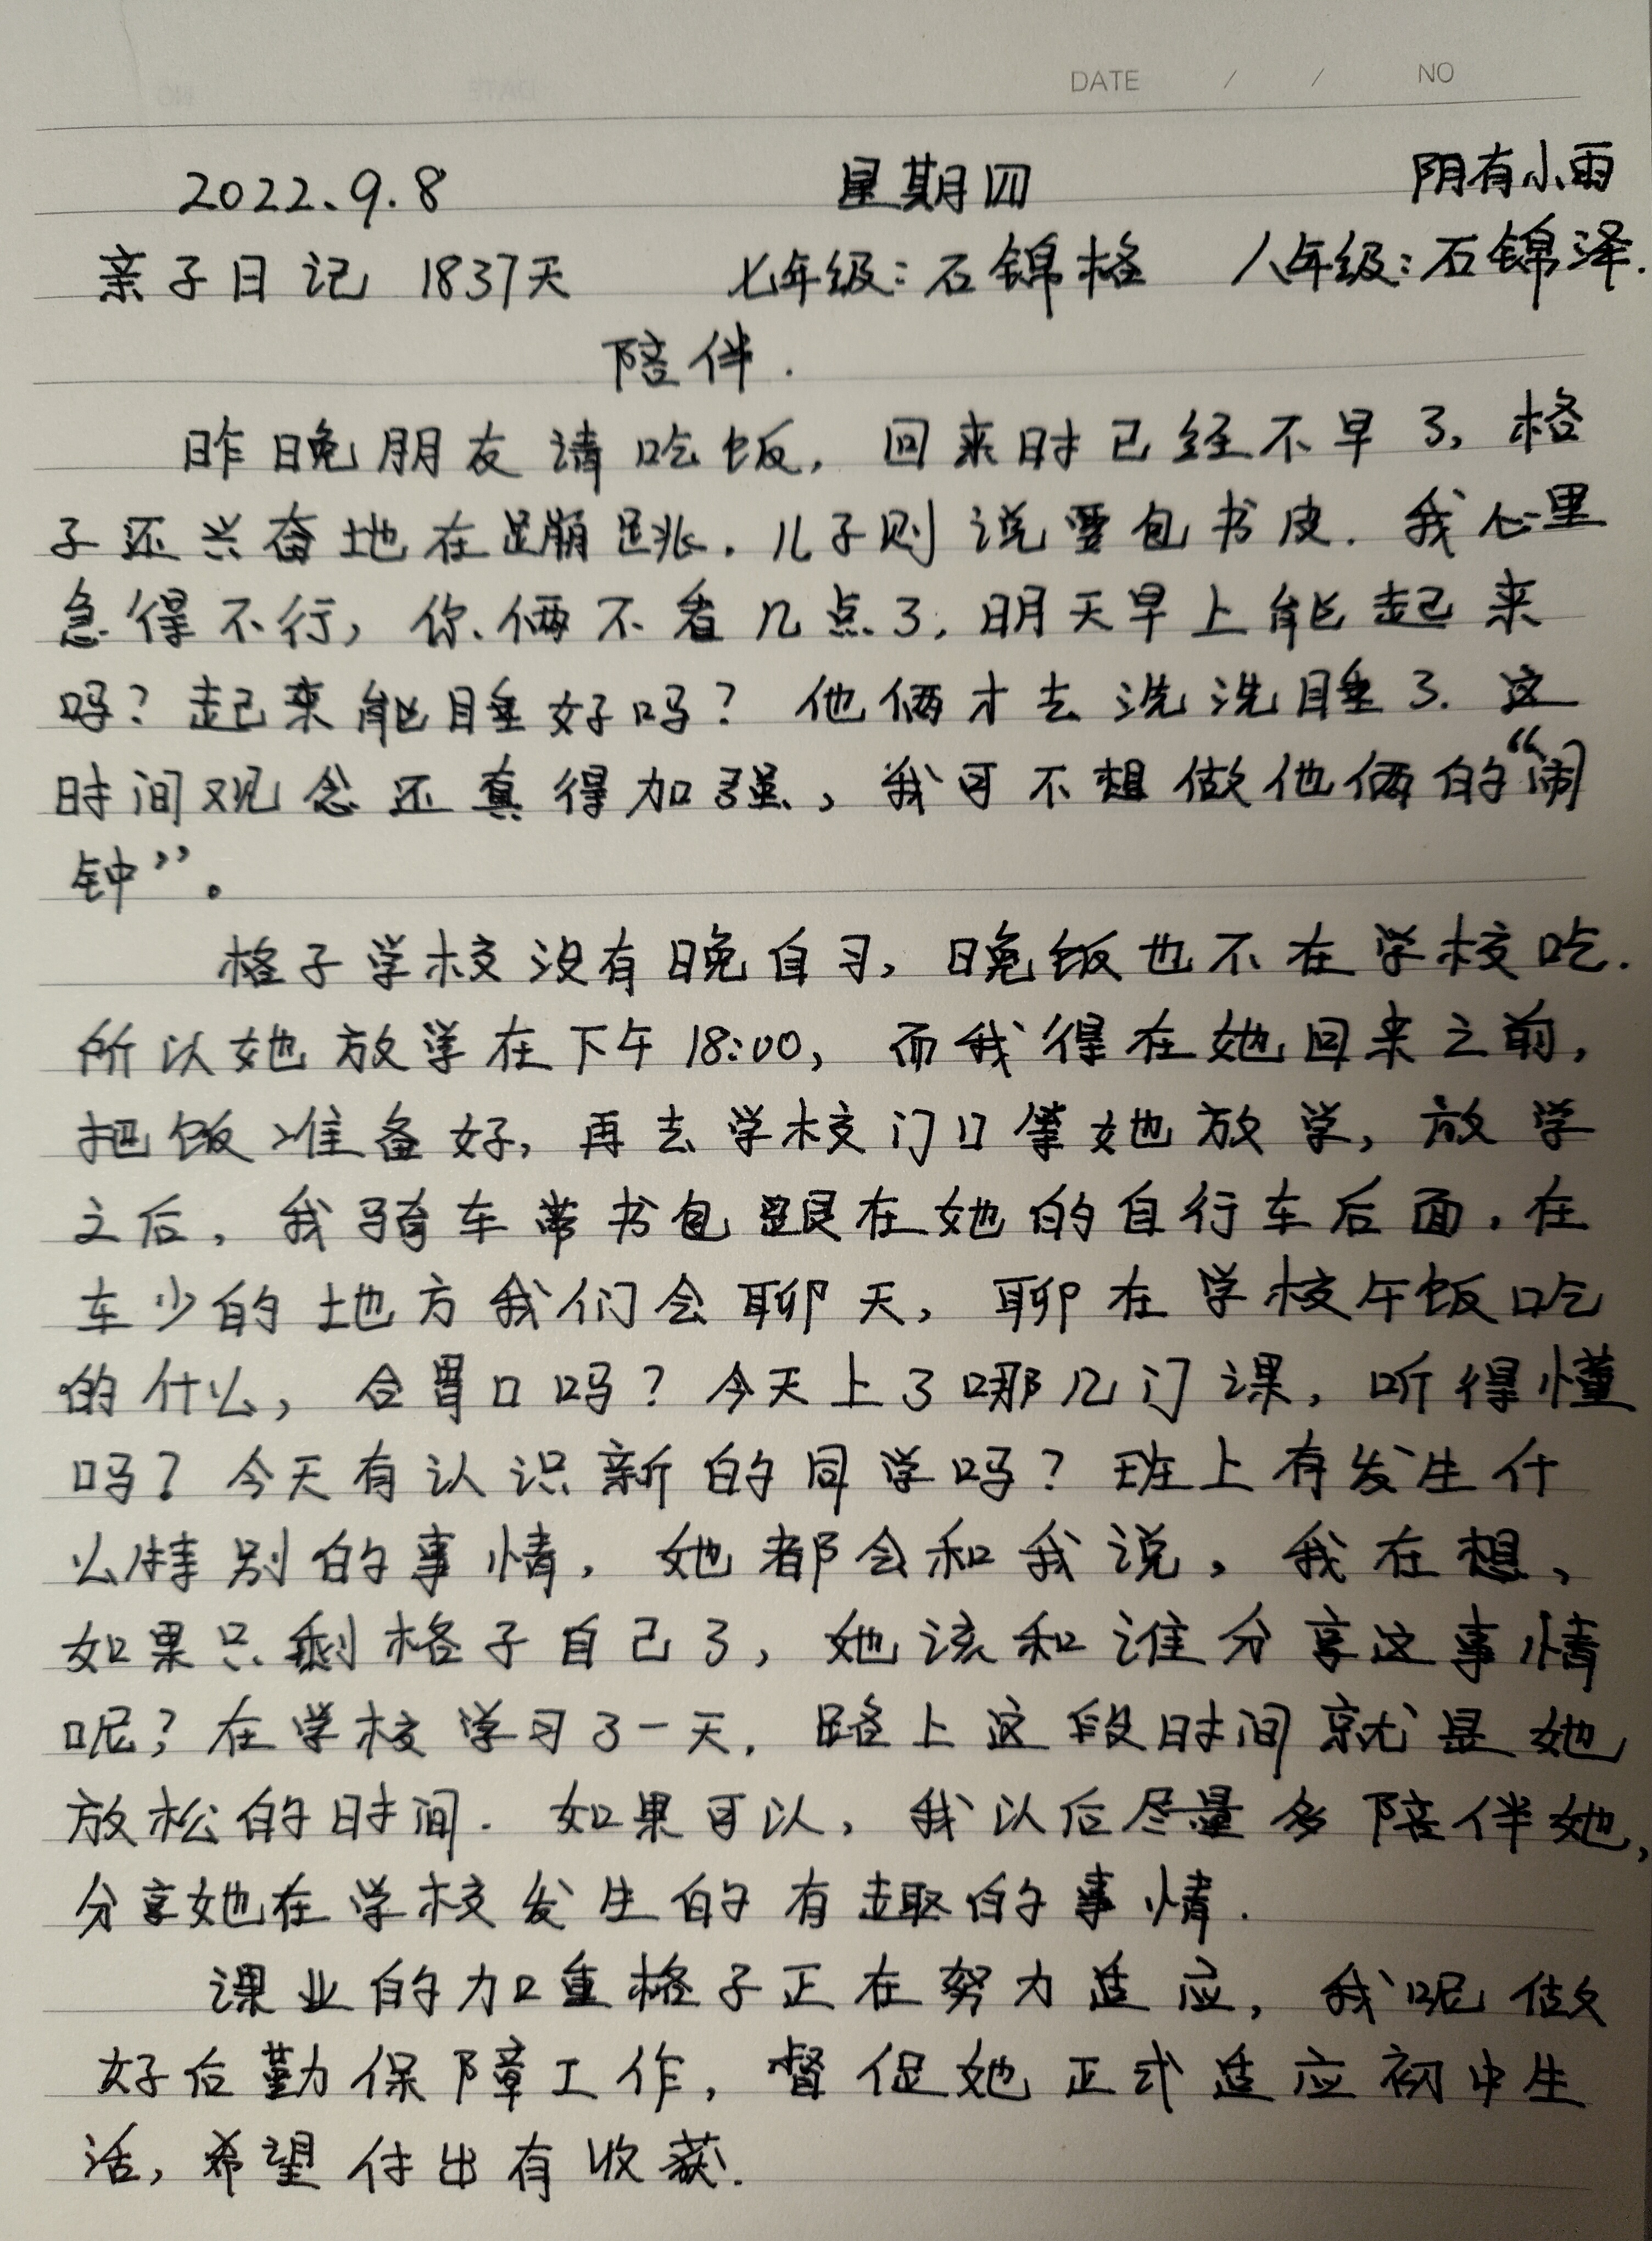 DATE / / NO
2022.9.8 星期四 阴有小雨
亲子日记 1837天 七年级:石锦格 八年级:石锦泽.
陪伴.
昨晚朋友请吃饭,回来时已经不早了,格
子还兴奋地在蹦跳.儿子则说要包书皮.我心里
急得不行,你俩不看几点了,明天早上能起来
吗?起来能睡好吗?他俩才去洗洗睡了.这
时间观念还真得加强,我可不想做他俩的“闹
钟”。
格子学校没有晚自习,晚饭也不在学校吃.
所以她放学在下午18:00,而我得在她回来之前,
把饭准备好,再去学校门口等她放学,放学
之后,我骑车带书包跟在她的自行车后面,在
车少的地方我们会聊天,聊在学校午饭吃
的什么,合胃口吗?今天上了哪几门课,听得懂
吗?今天有认识新的同学吗?班上有发生什
么特别的事情,她都会和我说,我在想,
如果只剩格子自己了,她该和谁分享这事情
呢?在学校学习了一天,路上这段时间就是她
放松的时间.如果可以,我以后尽量多陪伴她,
分享她在学校发生的有趣的事情.
课业的加重格子正在努力适应,我呢做
好后勤保障工作,督促她正式适应初中生
活,希望付出有收获.